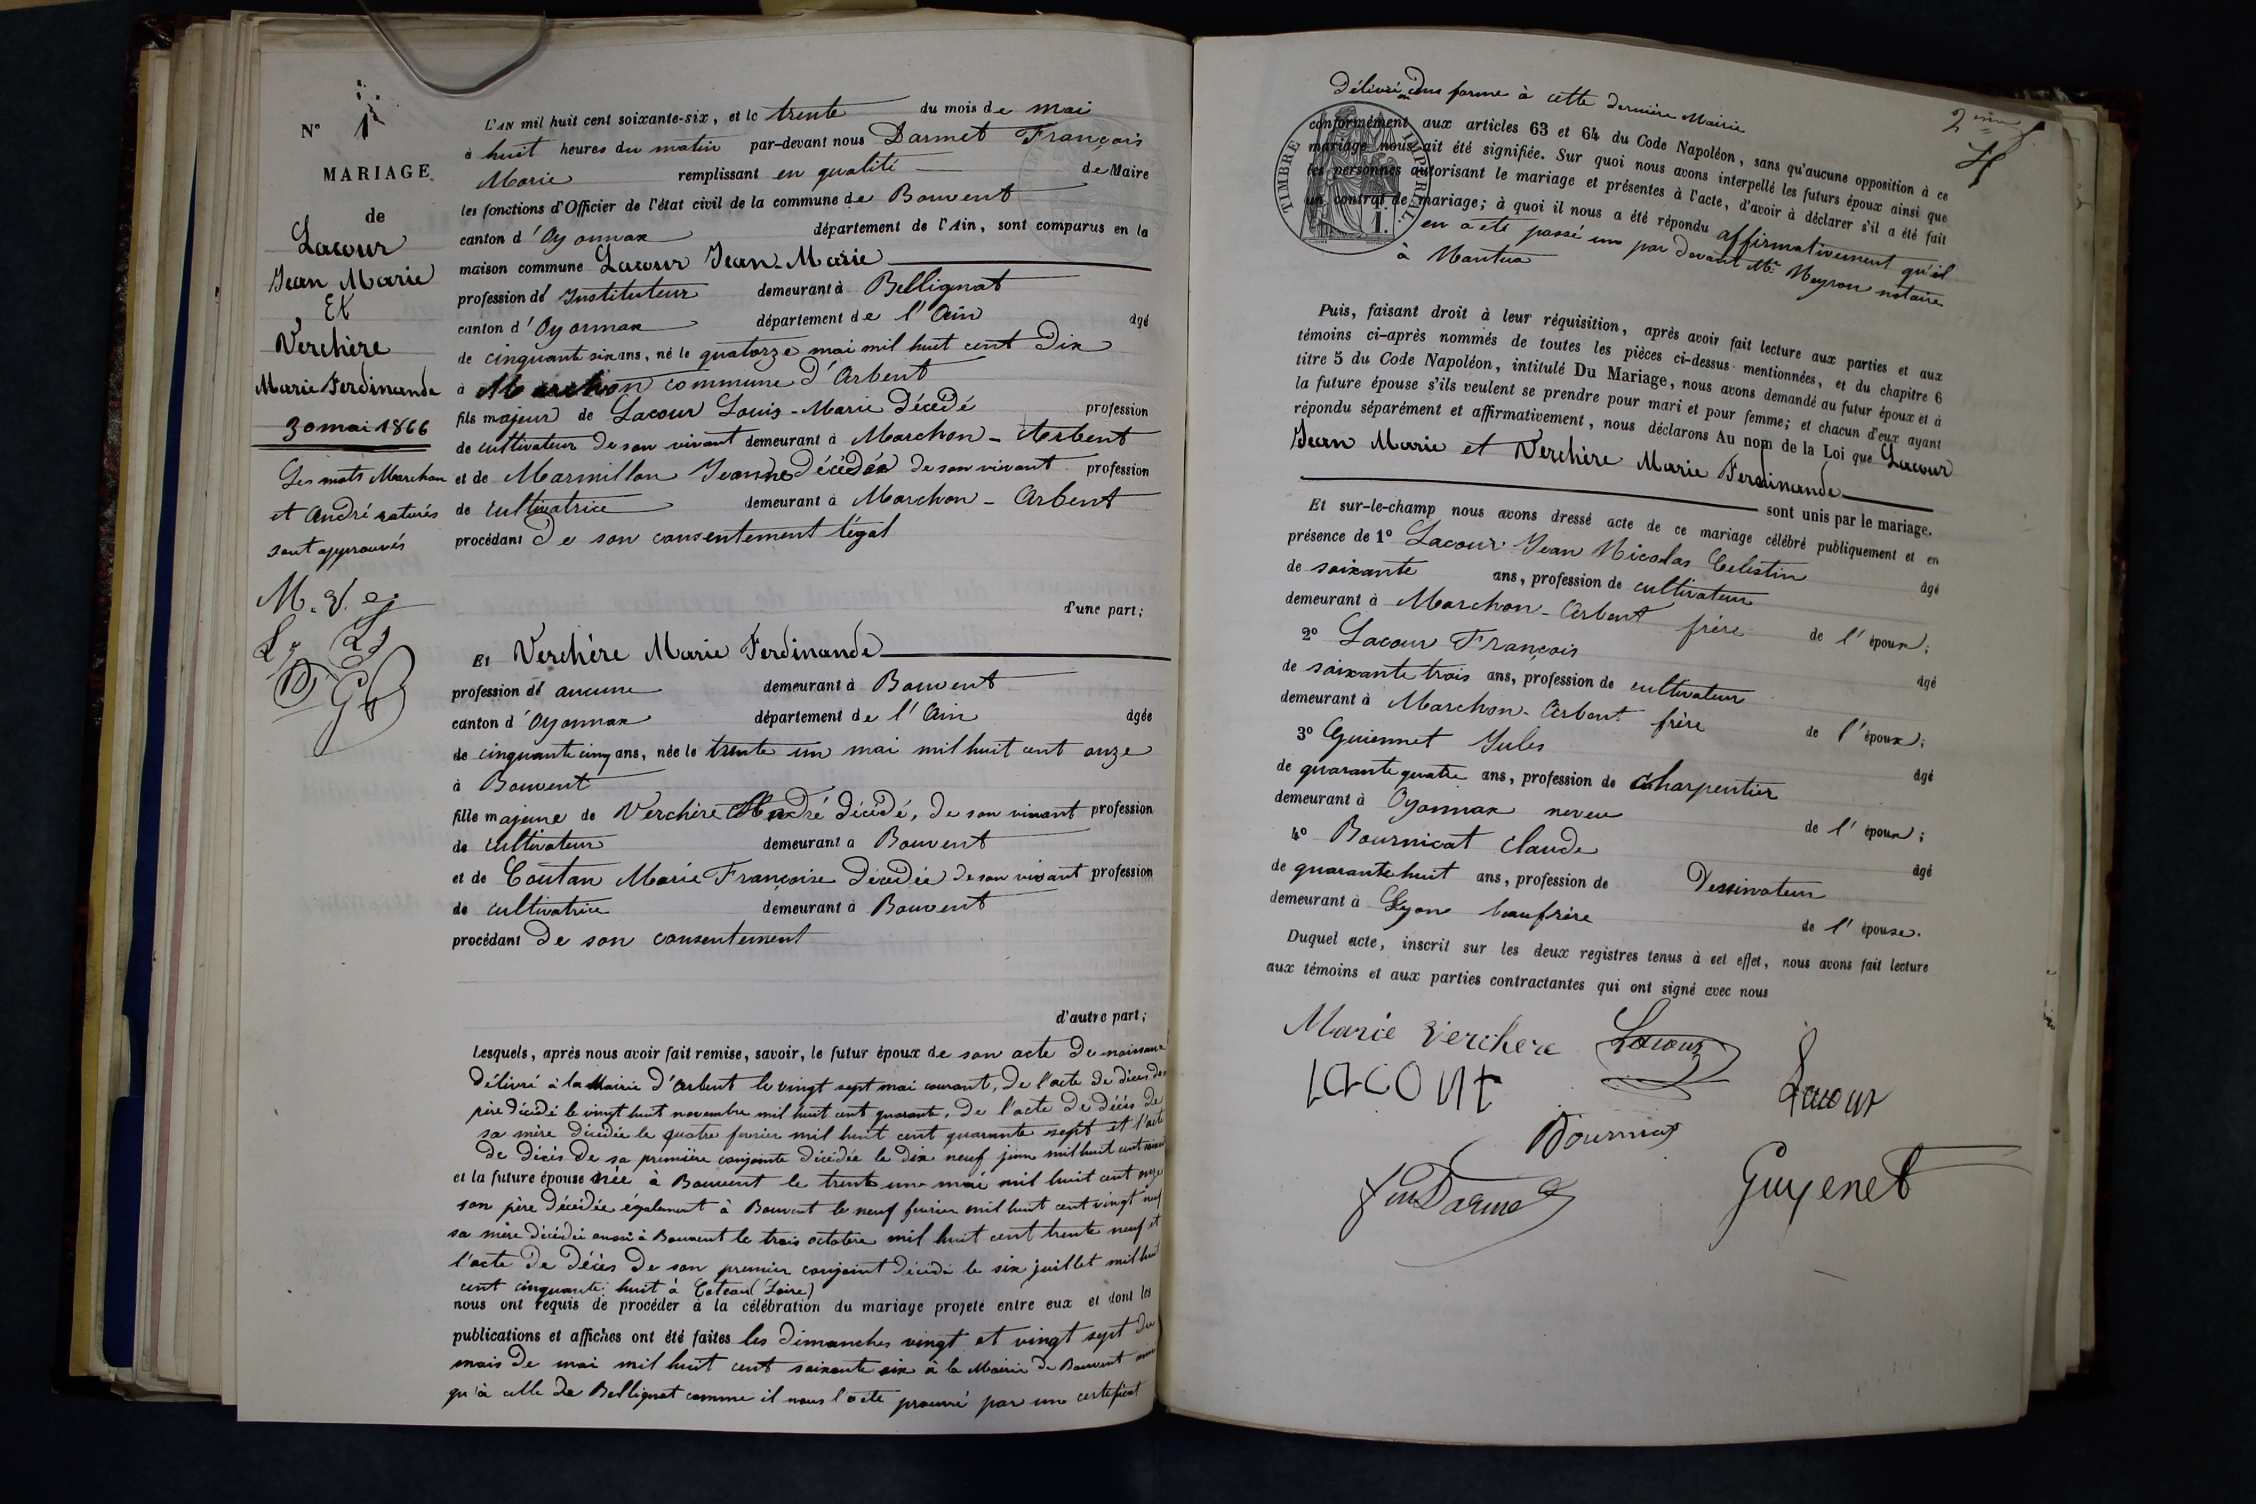 N° 1
MARIAGE
de
Lacour
Jean Marie
Et
Verchère
Marie Ferdinande
30 mai 1866
Les mots Marchon
et André raturés
sont approuvés
M. V.
L'AN mil huit cent soixante-six, et le trente du mois de mai
à huit heures du matin par-devant nous Darmet François
Marie remplissant en qualité de Maire
les fonctions d'Officier de l'état civil de la commune de Bouvent
canton d'Oyonnax département de l'Ain, sont comparus en la
maison commune Lacour Jean-Marie
profession d' Instituteur demeurant à Bellignat
canton d'Oyonnax département de l'Ain âgé
de cinquante six ans, né le quatorze mai mil huit cent dix
à Marchon commune d'Arbent
fils majeur de Lacour Louis-Marie décédé profession
de cultivateur de son vivant demeurant à Marchon - Arbent
et de Marmillon Jeanne décédée de son vivant profession
de cultivatrice demeurant à Marchon - Arbent
procédant de son consentement légal
d'une part;
Et Verchère Marie Ferdinande
profession d' aucune demeurant à Bouvent
canton d'Oyonnax département de l'Ain âgée
de cinquante cinq ans, née le trente un mai mil huit cent onze
à Bouvent
fille majeure de Verchère André décédé, de son vivant profession
de cultivateur demeurant à Bouvent
et de Coutan Marie Françoise décédée de son vivant profession
de cultivatrice demeurant à Bouvent
procédant de son consentement
d'autre part;
Lesquels, après nous avoir fait remise, savoir, le futur époux de son acte de naissance
délivré à la Mairie d'Arbent le vingt sept mai courant, de l'acte de décès de
père décédé le vingt huit novembre mil huit cent quarante, de l'acte de décès de
sa mère décédée le quatre fevrier mil huit cent quarante sept et l'acte
de décès de sa première conjointe décédée le dix neuf juin mil huit cent
et la future épouse née à Bouvent le trente une mai mil huit cent onze
son père décédée également à Bouvent le neuf fevrier mil huit cent vingt neuf
sa mère décédée aussi à Bouvent le trois octobre mil huit cent trente neuf et
l'acte de décès de son premier conjoint décédé le six juillet mil huit
cent cinquante huit à Coteau (Loire)
nous ont requis de procéder à la célébration du mariage projeté entre eux et dont les
publications et affiches ont été faites les dimanches vingt et vingt sept du
mois de mai mil huit cent soixante six à la Mairie de Bouvent
qu'à celle de Bellignat comme il nous l'a été prouvé par une certificat
2
délivré en due forme à cette dernière Mairie
TIMBRE IMPÉRIAL
conformément aux articles 63 et 64 du Code Napoléon, sans qu'aucune opposition à ce
mariage nous ait été signifiée. Sur quoi nous avons interpellé les futurs époux ainsi que
les personnes autorisant le mariage et présentes à l'acte, d'avoir à déclarer s'il a été fait
un contrat de mariage; à quoi il nous a été répondu affirmativement qu'il
en a été passé un par devant Me Meyron notaire
à Nantua
Puis, faisant droit à leur réquisition, après avoir fait lecture aux parties et aux
témoins ci-après nommés de toutes les pièces ci-dessus mentionnées, et du chapitre 6
titre 5 du Code Napoléon, intitulé Du Mariage, nous avons demandé au futur époux et à
la future épouse s'ils veulent se prendre pour mari et pour femme; et chacun d'eux ayant
répondu séparément et affirmativement, nous déclarons Au nom de la Loi que Lacour
Jean Marie et Verchère Marie Ferdinande
sont unis par le mariage.
Et sur-le-champ nous avons dressé acte de ce mariage célébré publiquement et en
présence de 1° Lacour Jean Nicolas Celestin âgé
de soixante ans, profession de cultivateur
demeurant à Marchon - Arbent frère de l'époux;
2° Lacour François âgé
de soixante trois ans, profession de cultivateur
demeurant à Marchon - Arbent frère de l'époux;
3° Guiennet Jules âgé
de quarante quatre ans, profession de charpentier
demeurant à Oyonnax neveu de l'époux;
4° Bournicat Claude âgé
de quarante huit ans, profession de Dessinateur
demeurant à Lyon beaufrère de l'épouse.
Duquel acte, inscrit sur les deux registres tenus à cet effet, nous avons fait lecture
aux témoins et aux parties contractantes qui ont signé avec nous
Marie verchere Lacour
Lacour Lacour
Bournicat
Darmet Guyenet